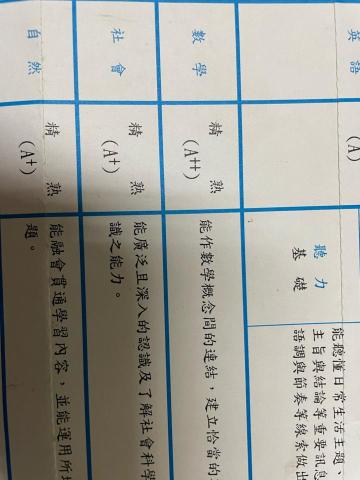 英語
(A)
聽力
基礎
能聽懂日常生活主題、
主旨與結論等重要訊息
語調與節奏等線索做出
數學
精熟
(A++)
能作數學概念間的連結，建立恰當的
社會
精熟
(A+)
能廣泛且深入的認識及了解社會科學
識之能力。
自然
精熟
(A+)
能融會貫通學習內容，並能運用所
題。